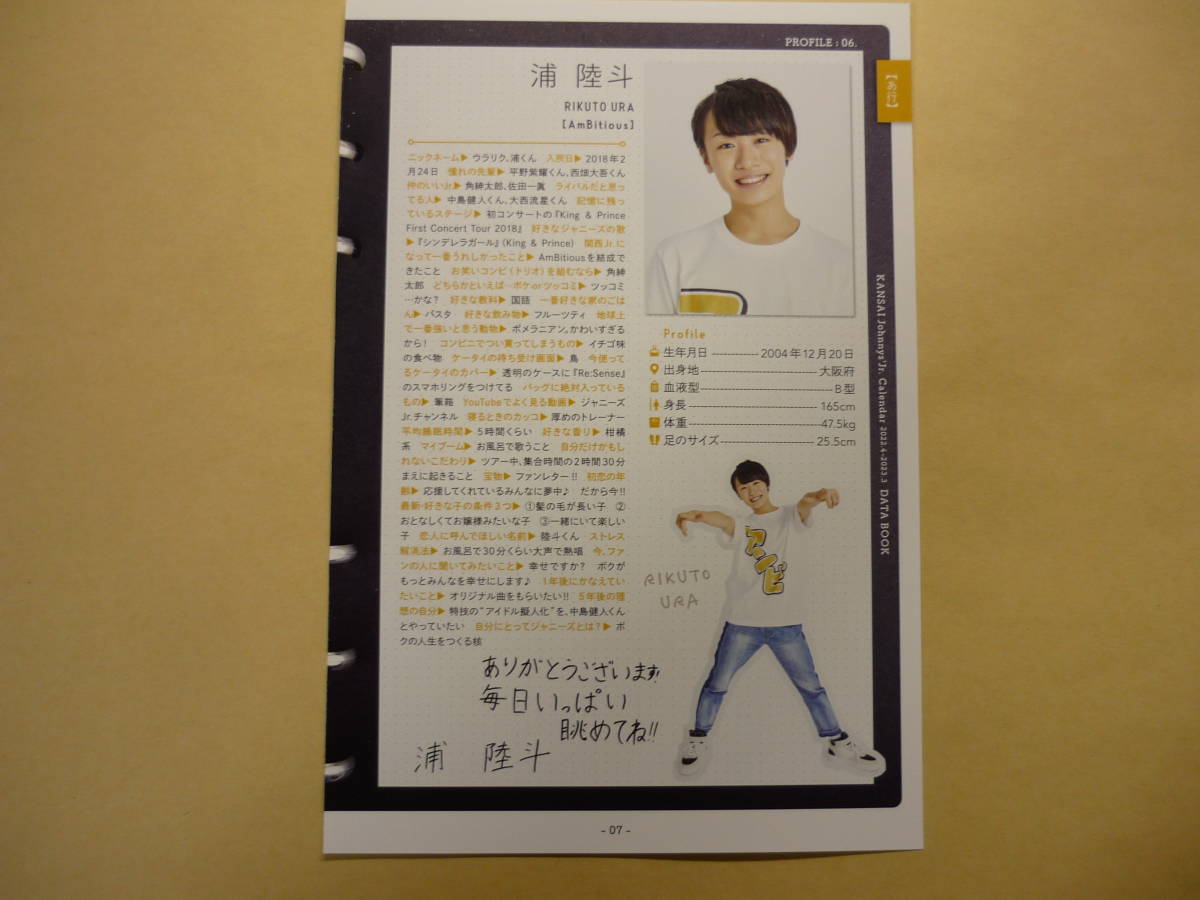 PROFILE : 06.
【あ行】
浦 陸斗
RIKUTO URA
[AmBitious]
ニックネーム▶ ウラリク、浦くん 入所日▶ 2018年2
月24日 憧れの先輩▶ 平野紫耀くん、西畑大吾くん
仲のいいJr.▶ 角紳太郎、佐田一眞 ライバルだと思っ
てる人▶ 中島健人くん、大西流星くん 記憶に残っ
ているステージ▶ 初コンサートの『King & Prince
First Concert Tour 2018』 好きなジャニーズの歌
▶『シンデレラガール』(King & Prince) 関西Jr.に
なって一番うれしかったこと▶ AmBitiousを結成で
きたこと お笑いコンビ(トリオ)を組むなら▶ 角紳
太郎 どちらかといえば…ボケorツッコミ▶ ツッコミ
…かな? 好きな教科▶ 国語 一番好きな家のごは
ん▶ パスタ 好きな飲み物▶ フルーツティ 地球上
で一番強いと思う動物▶ ポメラニアン。かわいすぎる
から! コンビニでつい買ってしまうもの▶ イチゴ味
の食べ物 ケータイの待ち受け画面▶ 鳥 今使って
るケータイのカバー▶ 透明のケースに『Re:Sense』
のスマホリングをつけてる バッグに絶対入っている
もの▶ 筆箱 YouTubeでよく見る動画▶ ジャニーズ
Jr.チャンネル 寝るときのカッコ▶ 厚めのトレーナー
平均睡眠時間▶ 5時間くらい 好きな香り▶ 柑橘
系 マイブーム▶ お風呂で歌うこと 自分だけかもし
れないこだわり▶ ツアー中、集合時間の2時間30分
まえに起きること 宝物▶ ファンレター!! 初恋の年
齢▶ 応援してくれているみんなに夢中♪ だから今!!
最新・好きな子の条件3つ▶ ①髪の毛が長い子 ②
おとなしくてお嬢様みたいな子 ③一緒にいて楽しい
子 恋人に呼んでほしい名前▶ 陸斗くん ストレス
解消法▶ お風呂で30分くらい大声で熱唱 今、ファ
ンの人に聞いてみたいこと▶ 幸せですか? ボクが
もっとみんなを幸せにします♪ 1年後にかなえてい
たいこと▶ オリジナル曲をもらいたい!! 5年後の理
想の自分▶ 特技の“アイドル擬人化”を、中島健人くん
とやっていたい 自分にとってジャニーズとは?▶ ボ
クの人生をつくる核
Profile
生年月日 ------------- 2004年12月20日
出身地 -------------------------------- 大阪府
血液型 ----------------------------------- B型
身長 ----------------------------------- 165cm
体重 ----------------------------------- 47.5kg
足のサイズ ------------------------- 25.5cm
アンビ
RIKUTO
URA
ありがとうございます!
毎日いっぱい
眺めてね!!
浦 陸斗
KANSAI Johnnys'Jr. Calendar 2022.4-2023.3 DATA BOOK
- 07 -